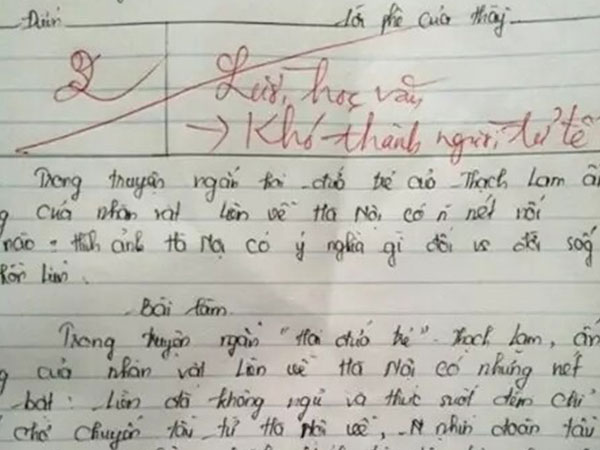 Điểm lời phê của thầy
2 Lười học văn,
→ Khó thành người tử tế
Trong truyện ngắn hai đứa trẻ của Thạch Lam ấn
của nhân vật Liên về Hà Nội có n nét nổi
nào: Hình ảnh Hà Nội có ý nghĩa gì đối vs đời sống
hồn Liên.
Bài làm
Trong truyện ngắn "Hai đứa trẻ". Thạch Lam, ấn
của nhân vật Liên về Hà Nội có những nét
bật: Liên đã không ngủ và thức suốt đêm chỉ
chờ chuyến tàu từ Hà Nội về, N nhìn đoàn tàu